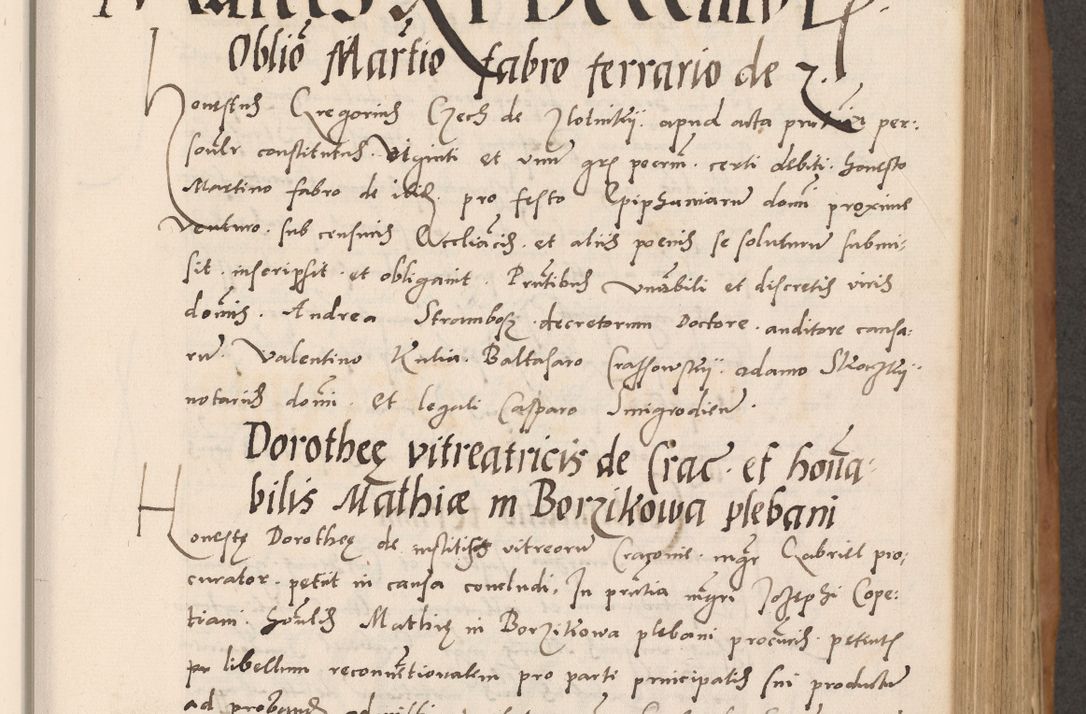 Martis XI Decembris
Oblīo Martīo fabro ferrario de Z.
Honestus Gregorius Czech de Zlotniky. apud acta pntia per:
sonlr constitutus. Viginti et vnū grs pecun. certi debiti. honesto
Martino fabro de ibid. pro festo Epiphaniarū domi proxime
venturo. sub censuris Ecclīacis. et aliis poenis se soluturū submi:
sit. inscripsit. et obligauit. Pntibus vnābili et discretis viris
domīs. Andrea Strambosz. decretorum Doctore. auditore causa:
rū. Valentino Kulia. Baltasaro Crassowsky. adamo Skarzsky.
notariis domi. Et legali Casparo Smigrodien.
Dorotheę vitreatricis de Crac. et honā:
bilis Mathiæ in Borzikowa plebani
Honestę Dorotheę de vitreorū Cracouie. mgr Gabriel pro:
curator. petiit in causa concludi. In pntia mgri Josephi Cope:
tiani. honlis Mathię in Borzikowa plebani procuris. petentis
libellum reconuētionalem pro parti principalis sui productū
ad probandū